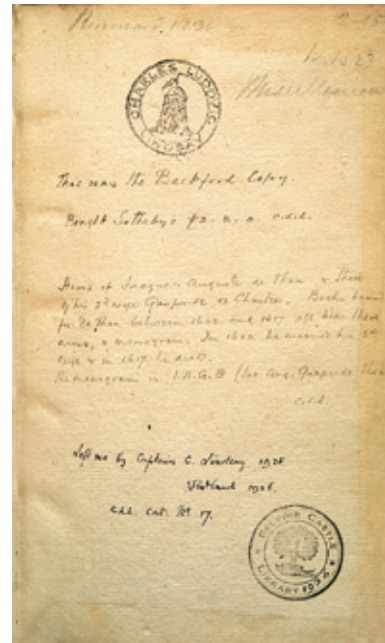 CHARLES LUDOVIC
LINDSAY
This was the Beckford Copy.
Bought Sotheby's £2. 2. 0. C.L.L.
Arms of Jacques Auguste de Thou & those
of his 2nd wife Gasparde de Chastre. Books bound
for De Thou between 1602 and 1617 all bear these
arms, & monogram. In 1602 he married his 2nd
wife & in 1617 he died.
The monogram is I.A.G.G. (Jac Aug. Gasparde Thou
C.L.L.
Left me by Captain C. Lindsay 1925.
Rutland 1926.
C.L.L. Cat. No 17.
BELVOIR CASTLE
LIBRARY 1924